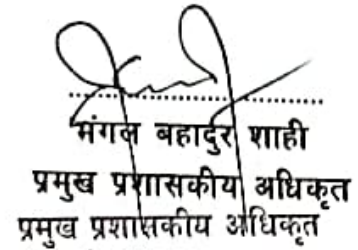 मंगल बहादुर शाही
प्रमुख प्रशासकीय अधिकृत
प्रमुख प्रशासकीय अधिकृत